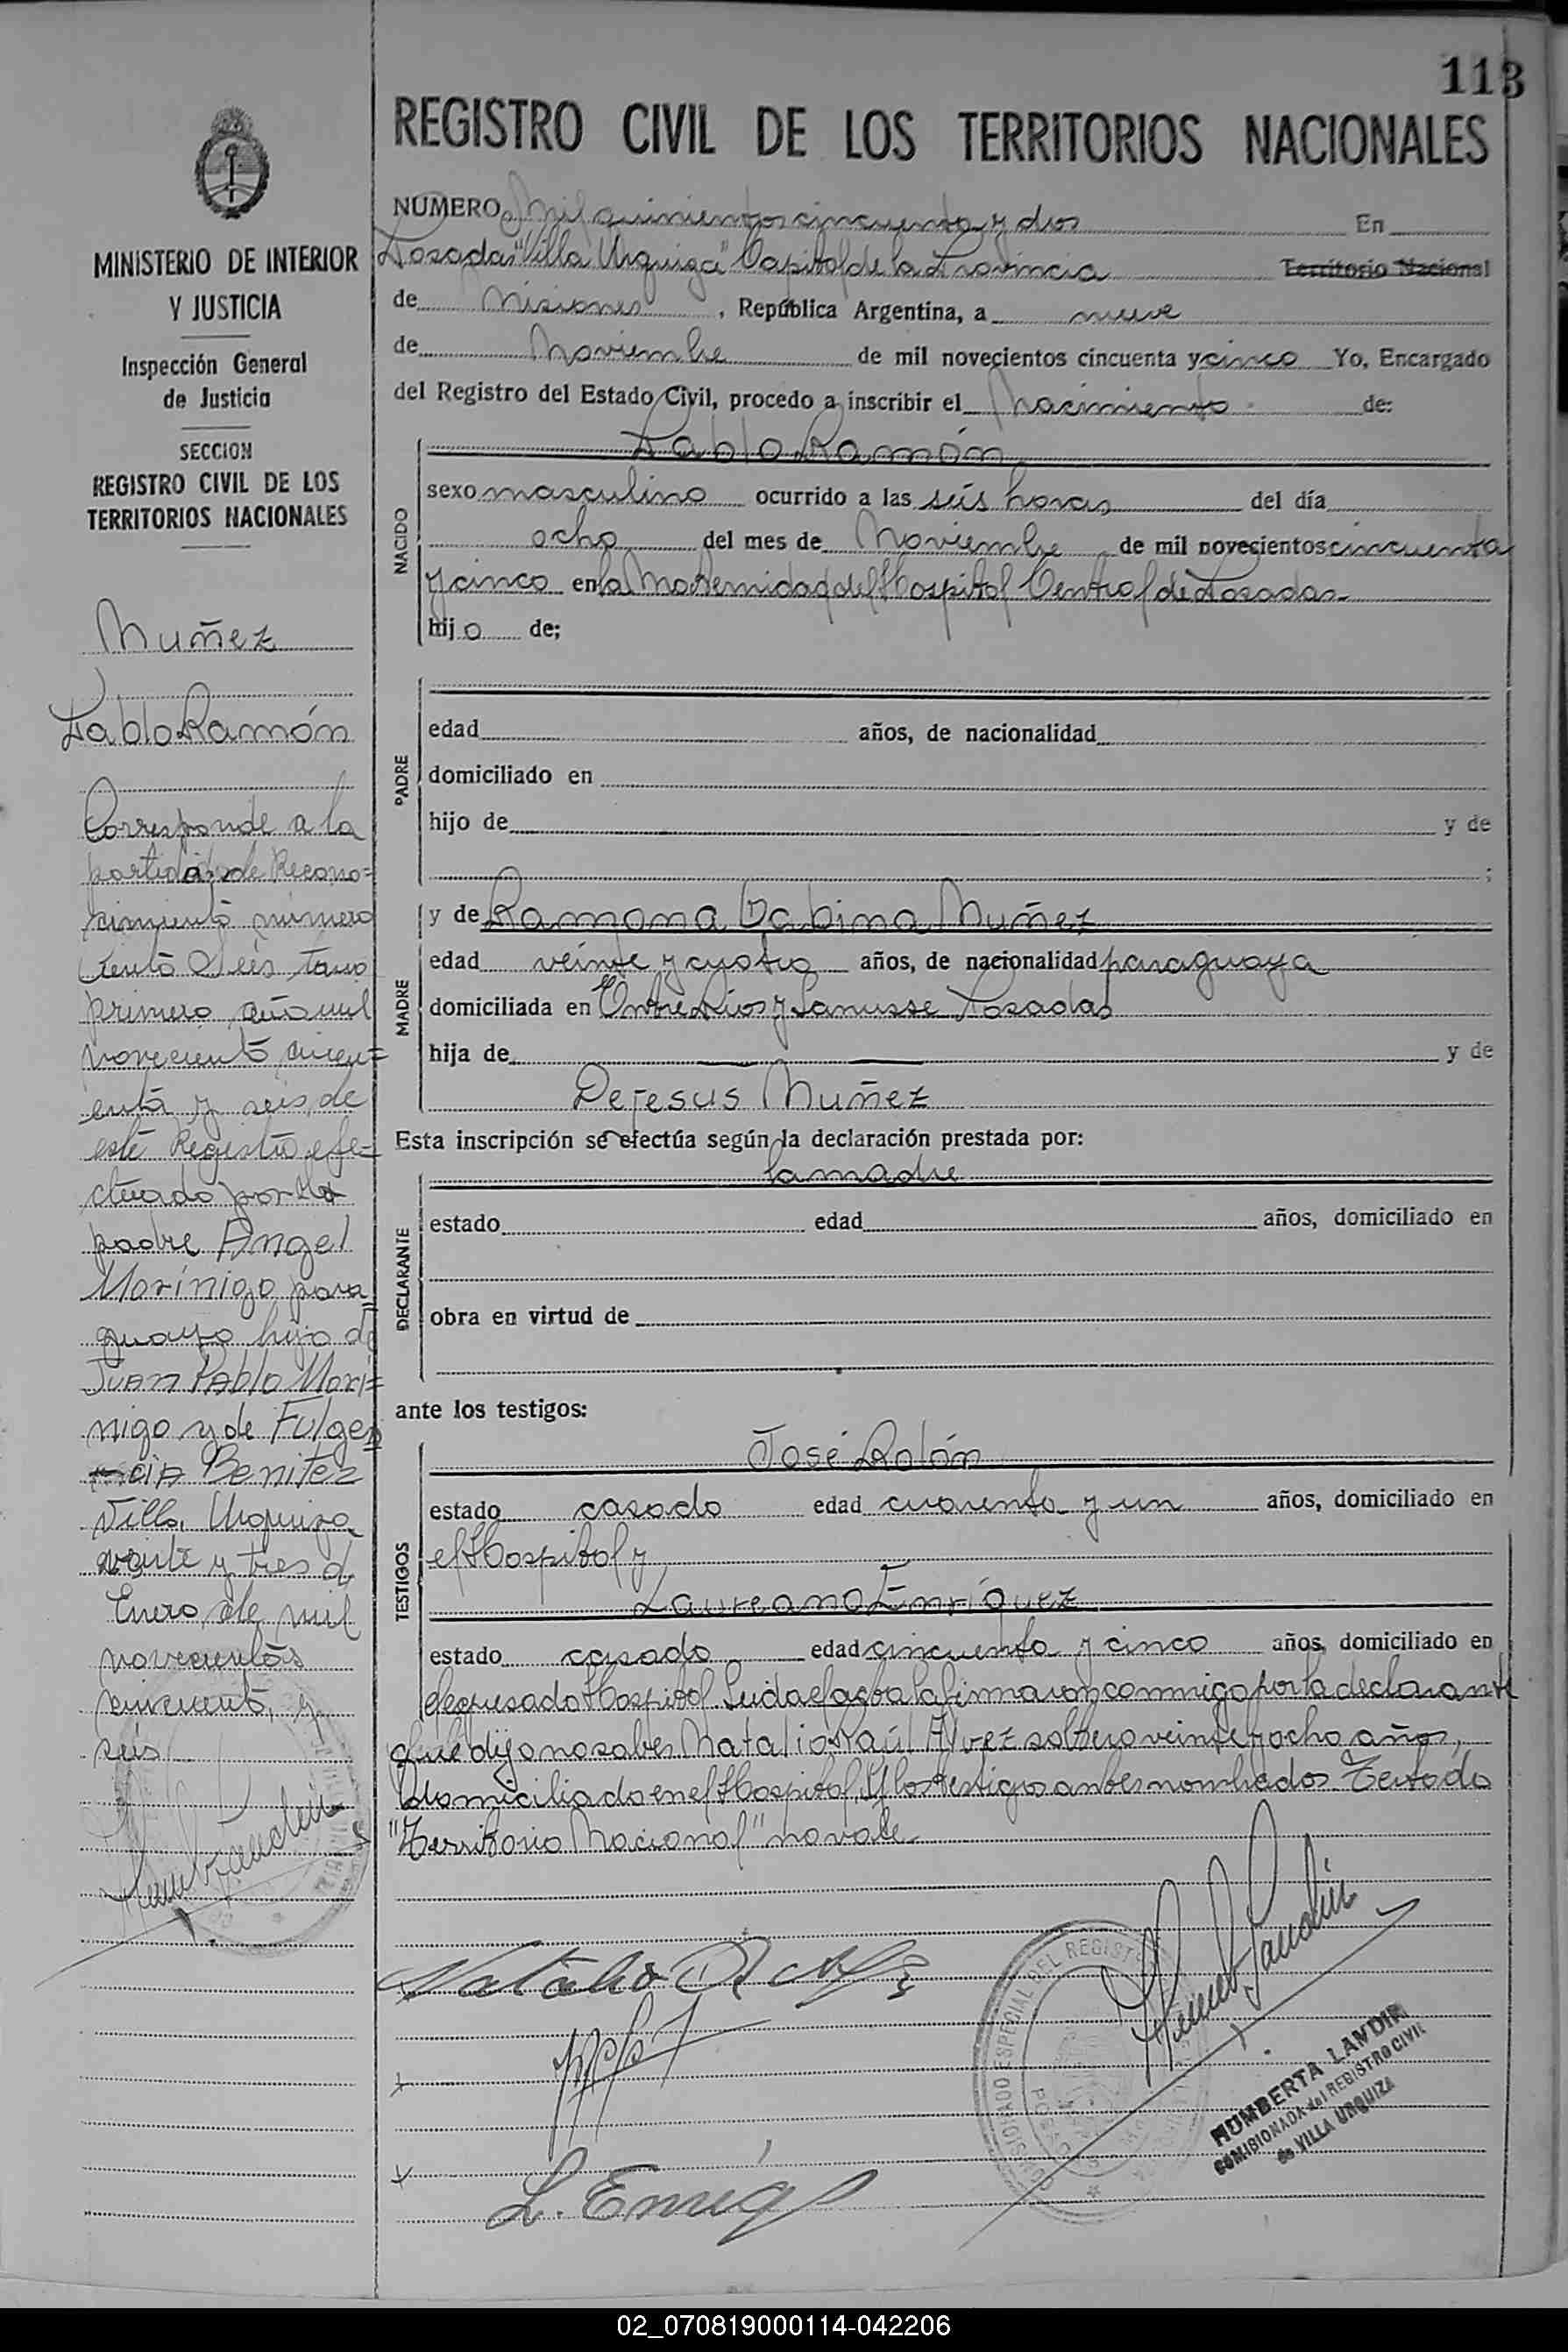 113
REGISTRO CIVIL DE LOS TERRITORIOS NACIONALES
MINISTERIO DE INTERIOR
Y JUSTICIA
Inspección General
de Justicia
SECCION
REGISTRO CIVIL DE LOS
TERRITORIOS NACIONALES
Muñez
Pablo Ramón
Corresponde a la
partida de Recono=
cimiento número
ciento seis, tomo
primero, año mil
noveciento cincu=
enta y seis, de
este Registro, efe=
ctuado por el
padre Angel
Morínigo para=
guayo hijo de
Juan Pablo Morí=
nigo y de Fulgen
cia Benitez
Villa Urquiza
veinte y tres de
Enero de mil
novecientos
cincuenta y
seis
NUMERO Mil quinientos cincuenta y dos En
Posadas "Villa Urquiza" Capital de la Provincia Territorio Nacional
de Misiones, República Argentina, a nueve
de Noviembre de mil novecientos cincuenta y cinco Yo, Encargado
del Registro del Estado Civil, procedo a inscribir el Nacimiento de:
NACIDO
Pablo Ramón
sexo masculino ocurrido a las seis horas del día
ocho del mes de Noviembre de mil novecientos cincuenta
y cinco en la Maternidad del Hospital Central de Posadas.
hijo de;
PADRE
edad años, de nacionalidad
domiciliado en
hijo de y de
;
MADRE
y de Ramona Gabina Muñez
edad veinte y cuatro años, de nacionalidad paraguaya
domiciliada en Entre Rios y Lanusse Posadas
hija de y de
Dejesus Muñez
Esta inscripción se efectúa según la declaración prestada por:
DECLARANTE
la madre
estado edad años, domiciliado en
obra en virtud de
ante los testigos:
TESTIGOS
José Rolón
estado casado edad cuarenta y un años, domiciliado en
el Hospital y
Laureano Enríquez
estado casado edad cincuenta y cinco años, domiciliado en
el expresado Hospital. Leida el acta la firmaron conmigo por la declarante
que dijo no saber Natalio Raúl Alvez soltero veinte y ocho años,
domiciliado en el Hospital, y los testigos antes nombrados. Testado
"Territorio Nacional" no vale.
L. Enríq
HUMBERTA LANDIN
COMISIONADA del REGISTRO CIVIL
de VILLA URQUIZA
02_070819000114-042206